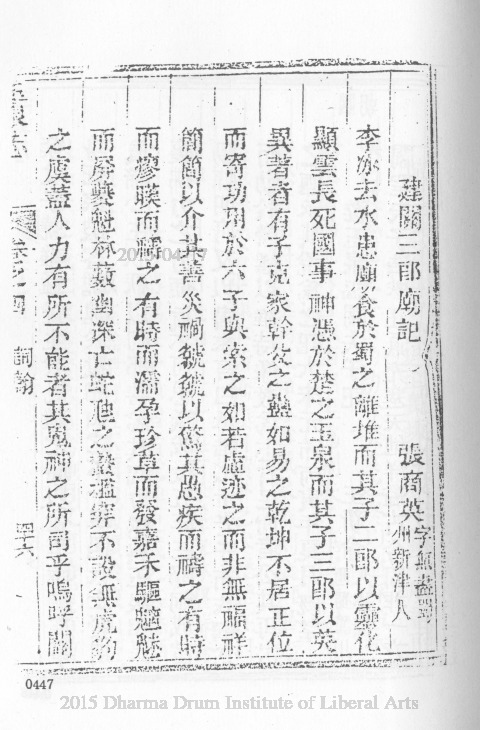 建關三郎廟記 張商英 字無盡蜀州新津人
李冰去水患廟食於蜀之離堆而其子二郎以靈化
顯雲長死國事神憑於楚之玉泉而其子三郎以英
異著者有子克家幹父之蠱如易之乾坤不居正位
而寄功用於六子與索之如若虛迹之而非無福祥
簡簡以介其善災禍虩虩以驚其愚疾而禱之有時
而瘳暵而禱之有時而濡孕珍草而發嘉禾驅魑魅
而屏夔魈林藪幽深亡蛇虺之螫檻穽不設無虎豹
之虞蓋人力有所不能者其鬼神之所司乎嗚呼關
志 卷之四 詞翰 四十六
2015 04
0447
2015 Dharma Drum Institute of Liberal Arts